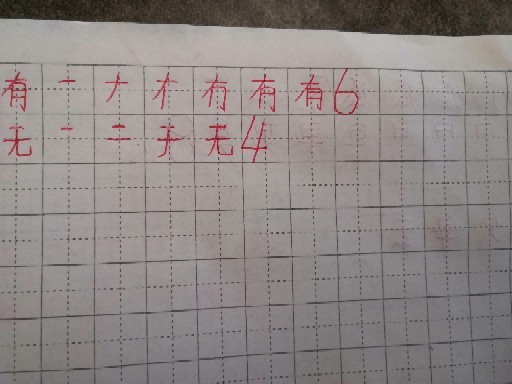 有 一 ナ 冇 有 有 6
无 一 二 于 无 4